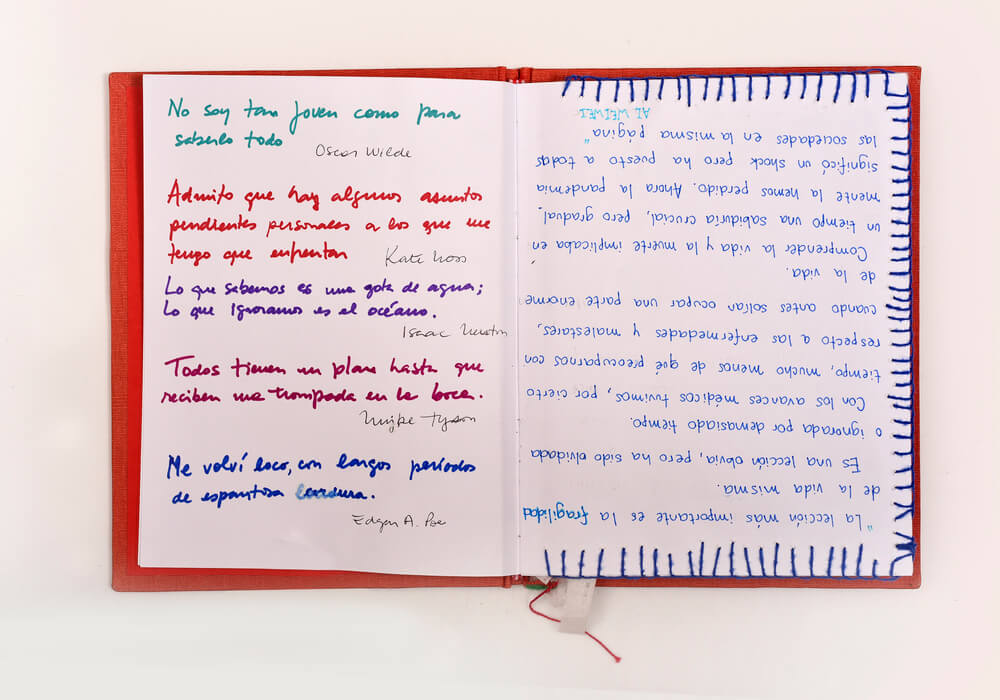 No soy tan joven como para
saberlo todo
Oscar Wilde
Admito que hay algunos asuntos
pendientes personales a los que me
tengo que enfrentar
Kate Moss
Lo que sabemos es una gota de agua;
Lo que ignoramos es el océano.
Isaac Newton
Todos tienen un plan hasta que
reciben una trompada en la boca.
Myke Tyson
Me volví loco, con largos períodos
de espantosa cordura.
Edgar A. Poe
"La lección más importante es la fragilidad
de la vida misma.
Es una lección obvia, pero ha sido olvidada
o ignorada por demasiado tiempo.
Con los avances médicos tuvimus, por cierto
tiempo, mucho menos de qué preocuparnos con
respecto a las enfermedades y malestares,
cuando antes solían ocupar una parte enorme
de la vida.
Comprender la vida y la muerte implicaba en
un tiempo una sabiduría crucial, pero gradual
mente la hemos perdido. Ahora la pandemia
significó un shock pero ha puesto a todas
las sociedades en la misma página"
AI WEIWEI